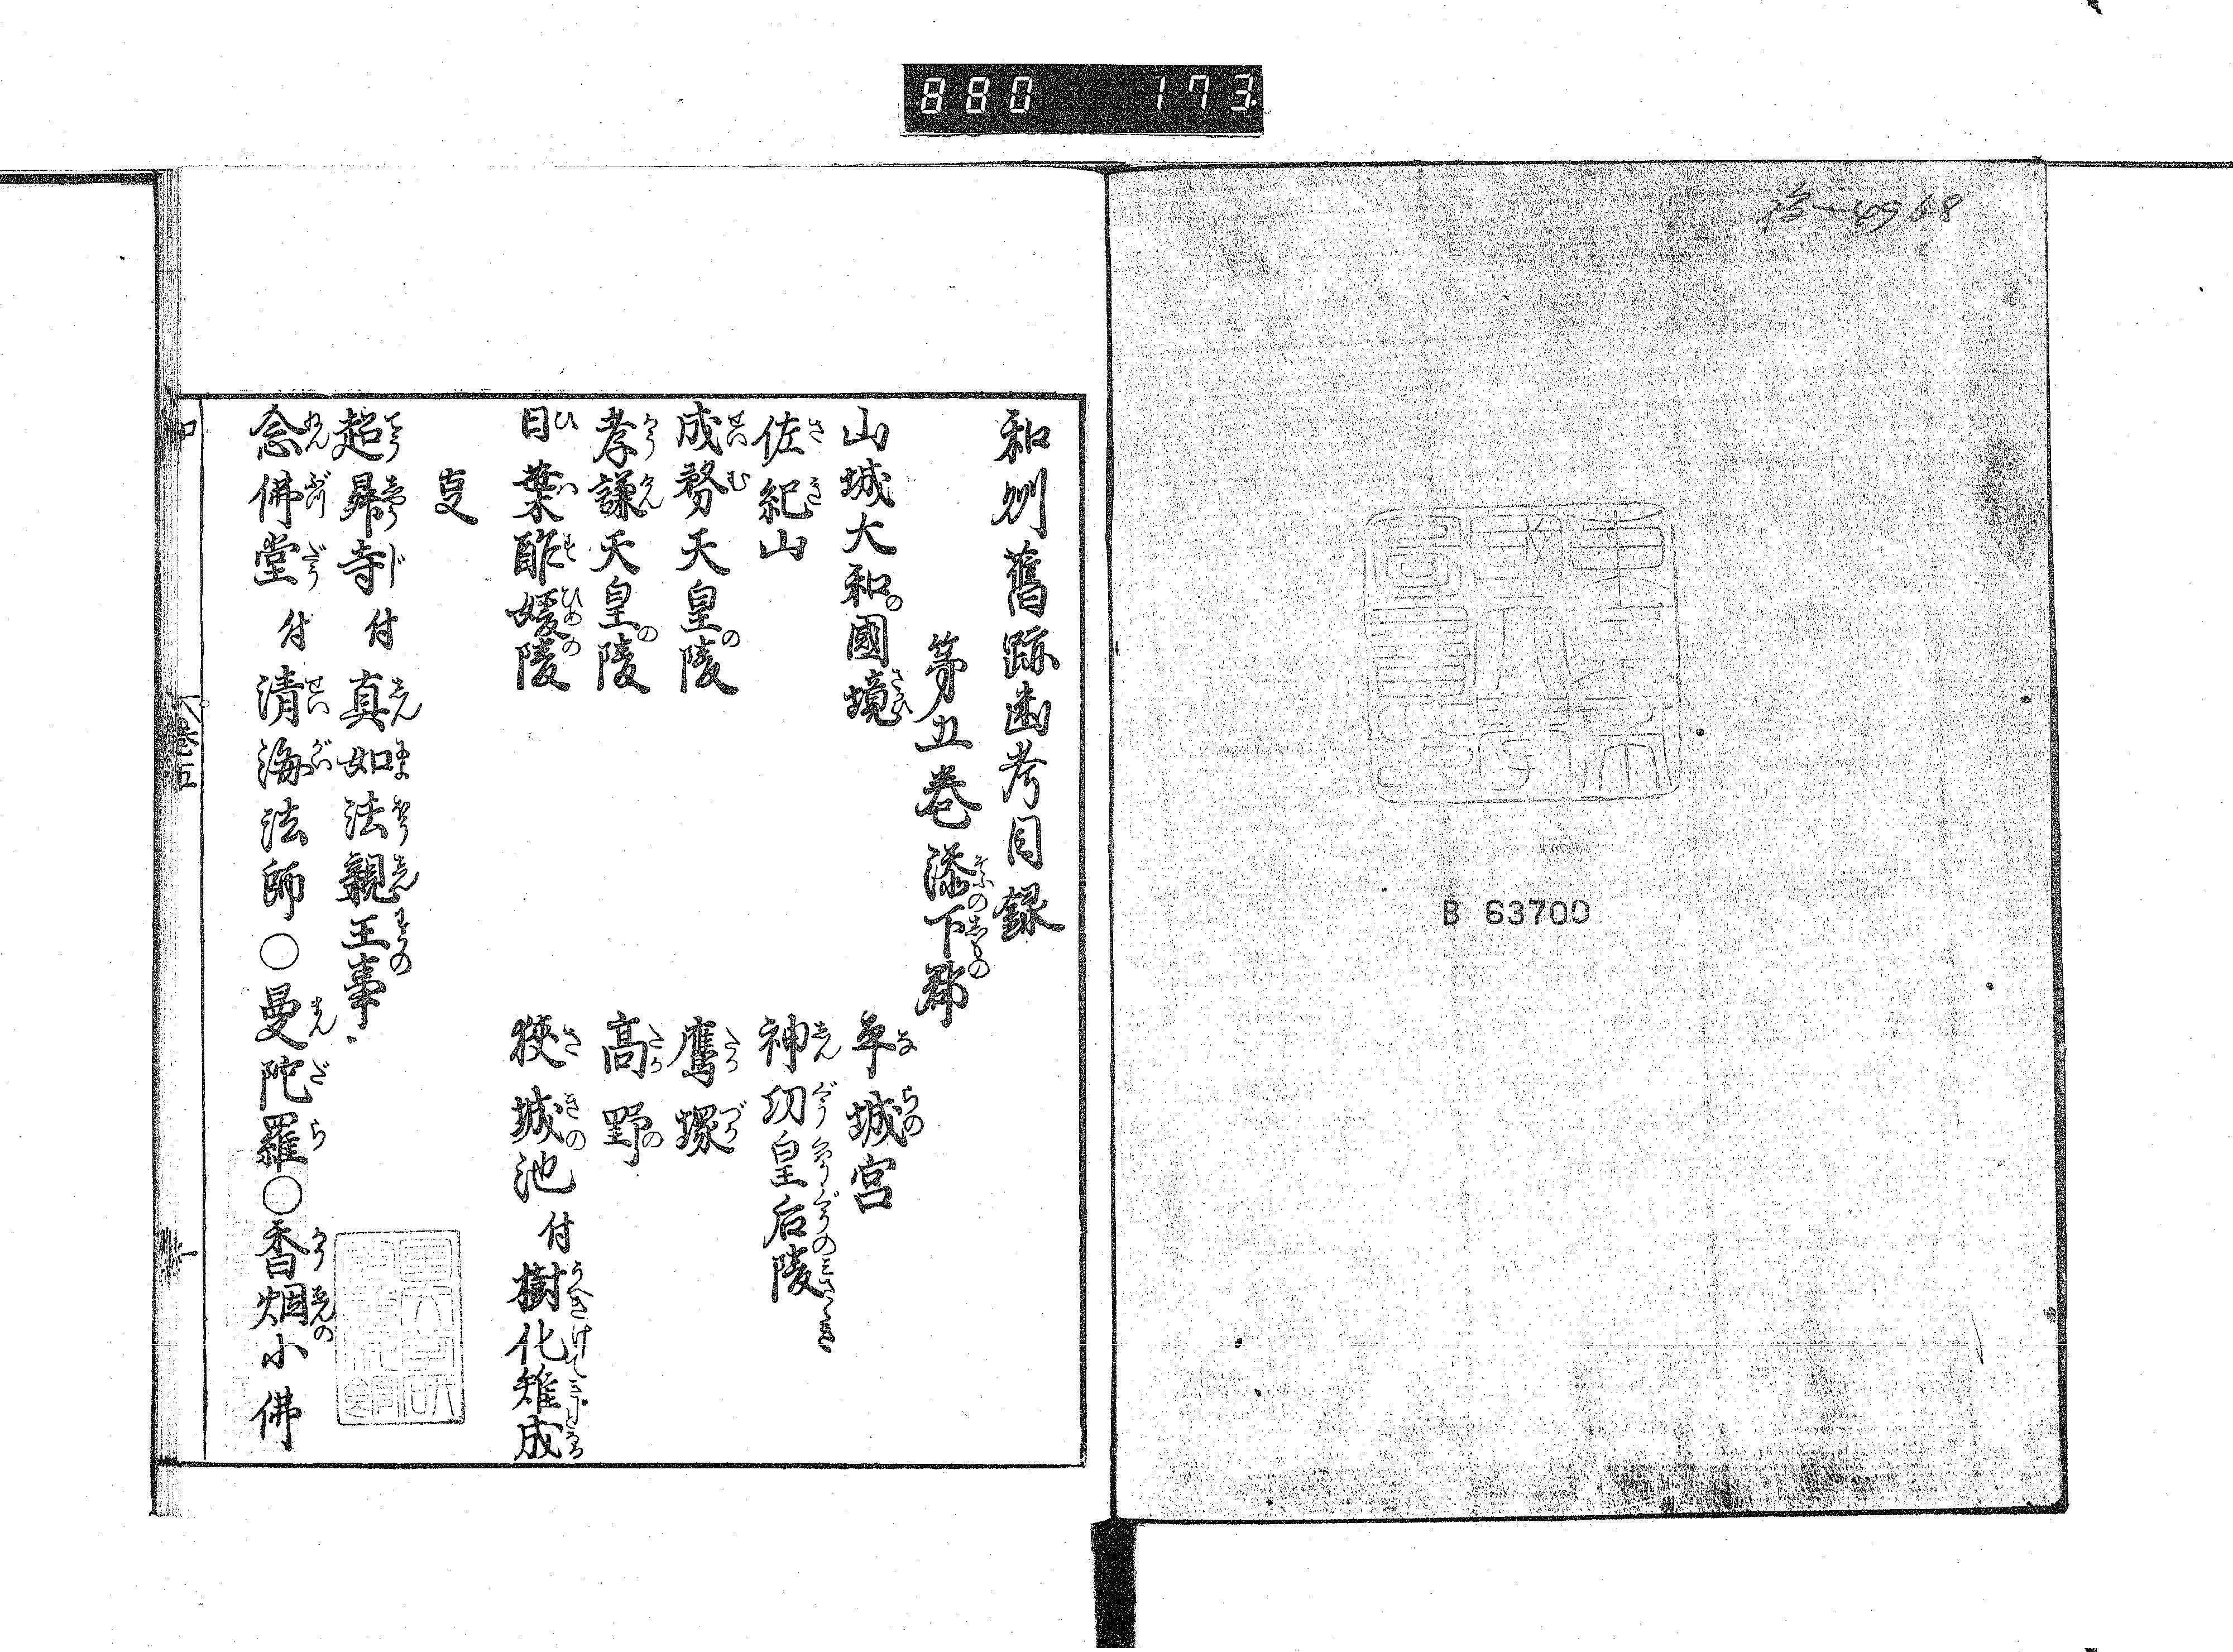 880 173
B 63700
和州舊跡幽考目録
第五卷 添下郡
山城大和の國境 平城宮
佐紀山 神功皇后陵
成務天皇の陵 鷹塚
孝謙天皇の陵 高野
日葉酢媛の陵 狹城池 付 樹化雉成
事
超昇寺 付 真如法親王事
念佛堂 付 清海法師 ○曼陀羅○香烟小佛